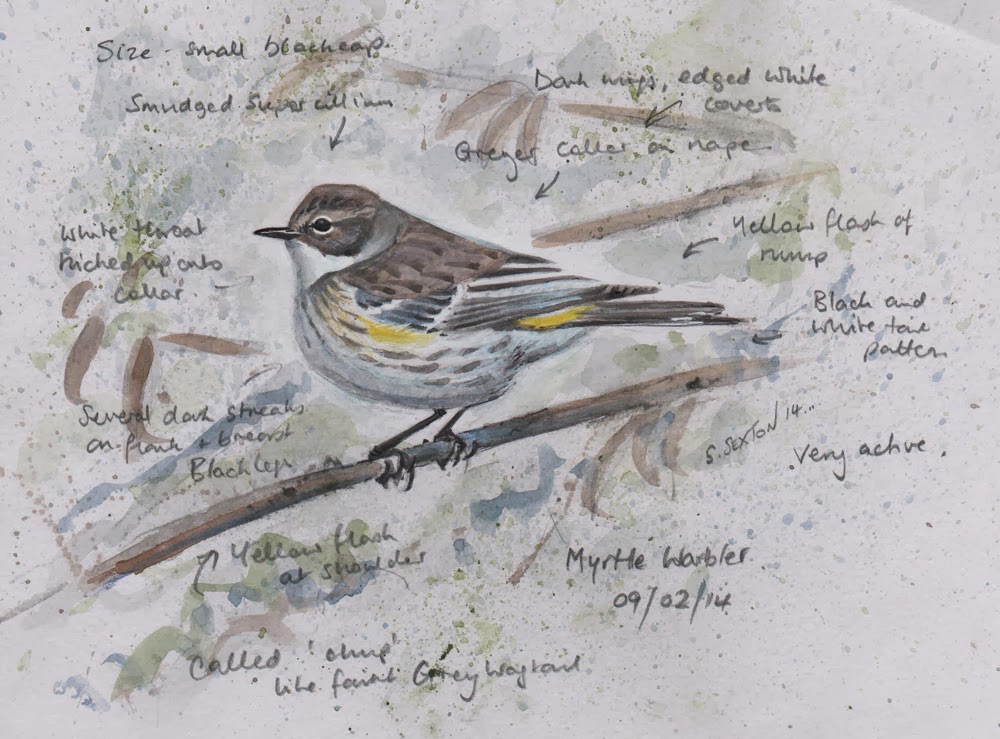 Size - small blackcap.
Smudged supercillium
Dark wings, edged white
coverts
Greyer collar on nape
White throat
hiched up onto
collar
Yellow flash of
rump
Black and
white tail
pattern
Several dark streaks
on flank + breast
Black legs
S. SEXTON 14...
Very active.
Yellow flash
at shoulder
Myrtle Warbler.
09/02/14
Called 'chup'
like faint Grey Wagtail